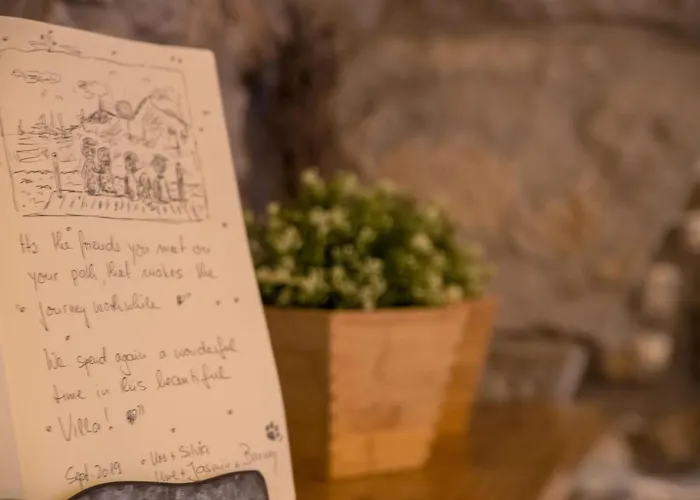 It's the friends you meet on
your path, that makes the
journey worthwhile
We spend again a wonderful
time in this beautiful
Villa!
Sept. 2019 Urs + Silvia
+ Jasmin